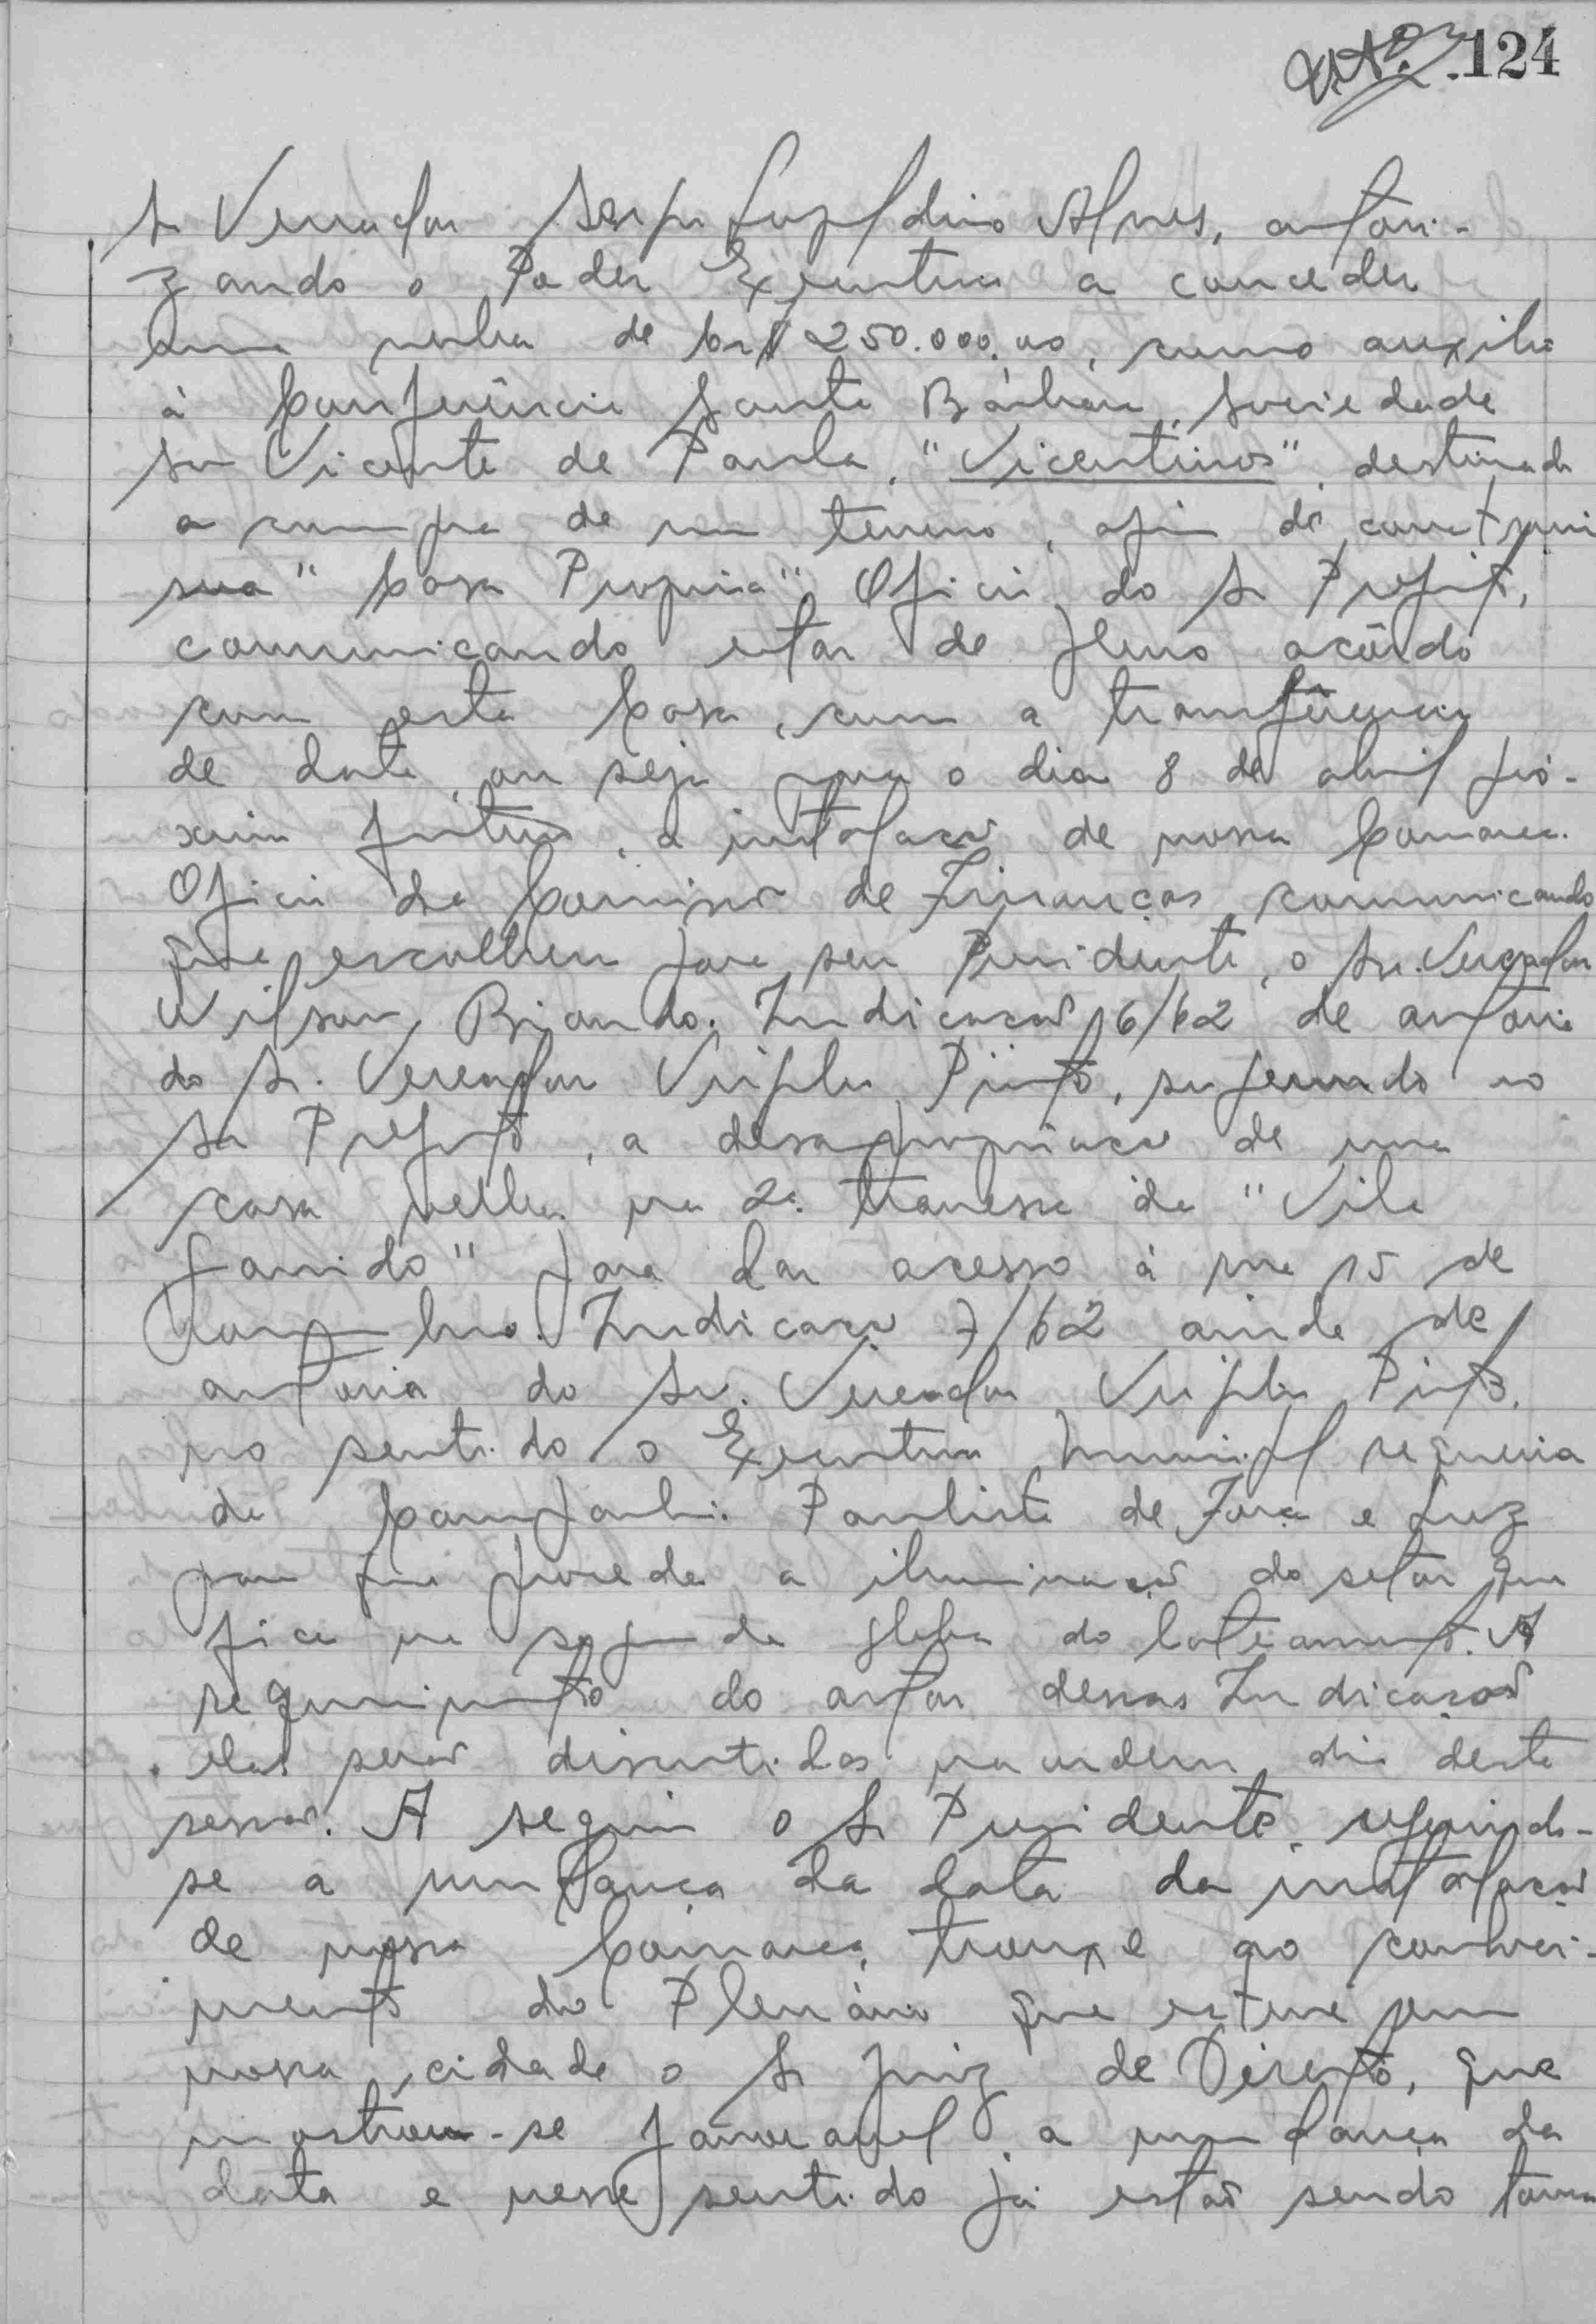 124
Sr Vereador Sergio Luzildino Alves, autori-
zando o Poder Executivo a conceder
uma verba de Cr$ 250.000,00, como auxilio
à Conferência Santa Bárbara, Sociedade
São Vicente de Paula, "Vicentinos", destinada
a compra de um terreno, afim de construir
sua "Casa Propria" Oficio do Sr Prefeito,
comunicando estar de pleno acôrdo
com esta Casa, com a transferência
de data, ou seja para o dia 8 de abril pró-
ximo futuro, a instalação de nossa Comarca.
Oficio da Comissão de Finanças comunicando
que escolheu para seu Presidente, o Sr. Vereador
Wilson Biando. Indicação 6/62 de autoria
do Sr. Vereador Pinto, sugerindo ao
Sr Prefeito, a desapropriação de uma
casa velha na 2a. travessa da "Vila
Garrido" para dar acesso à rua 15 de
Novembro. Indicação 7/62 ainda de
autoria do Sr. Vereador Pinto,
no sentido o Executivo Municipal requeira
da Companhia Paulista de Força e Luz
para que proceda a iluminação do setor que
fica na segunda gleba do loteamento. A
requerimento do autor dessas Indicações
elas serão discutidas na ordem dia desta
sessão. A seguir o Sr Presidente, referindo-
se a mudança da data da instalação
de nossa Comarca, trouxe ao conheci-
mento do Plenário que esteve em
nossa cidade o Sr Juiz de Direito, que
mostrou-se favoravel a mudança da
data e nesse sentido já estão sendo toma